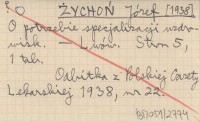 ŻYCHOŃ Józef [1938]
O potrzebie specjalizacji uzdro-
wisk. — Lwów. Stron 5,
1 tabl.
Odbitka z Polskiej Gazety
Lekarskiej 1938, nr 22.